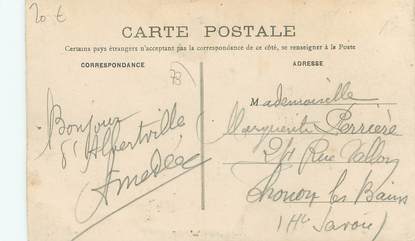 20 €
CARTE POSTALE
Certains pays étrangers n'acceptant pas la correspondance de ce côté, se renseigner à la Poste
CORRESPONDANCE
ADRESSE
73
Bonjour
d'Albertville
Amedée
Mademoiselle
Marguerite Perrière
Rue Vallon
Thonon les Bains
(Hte Savoie)